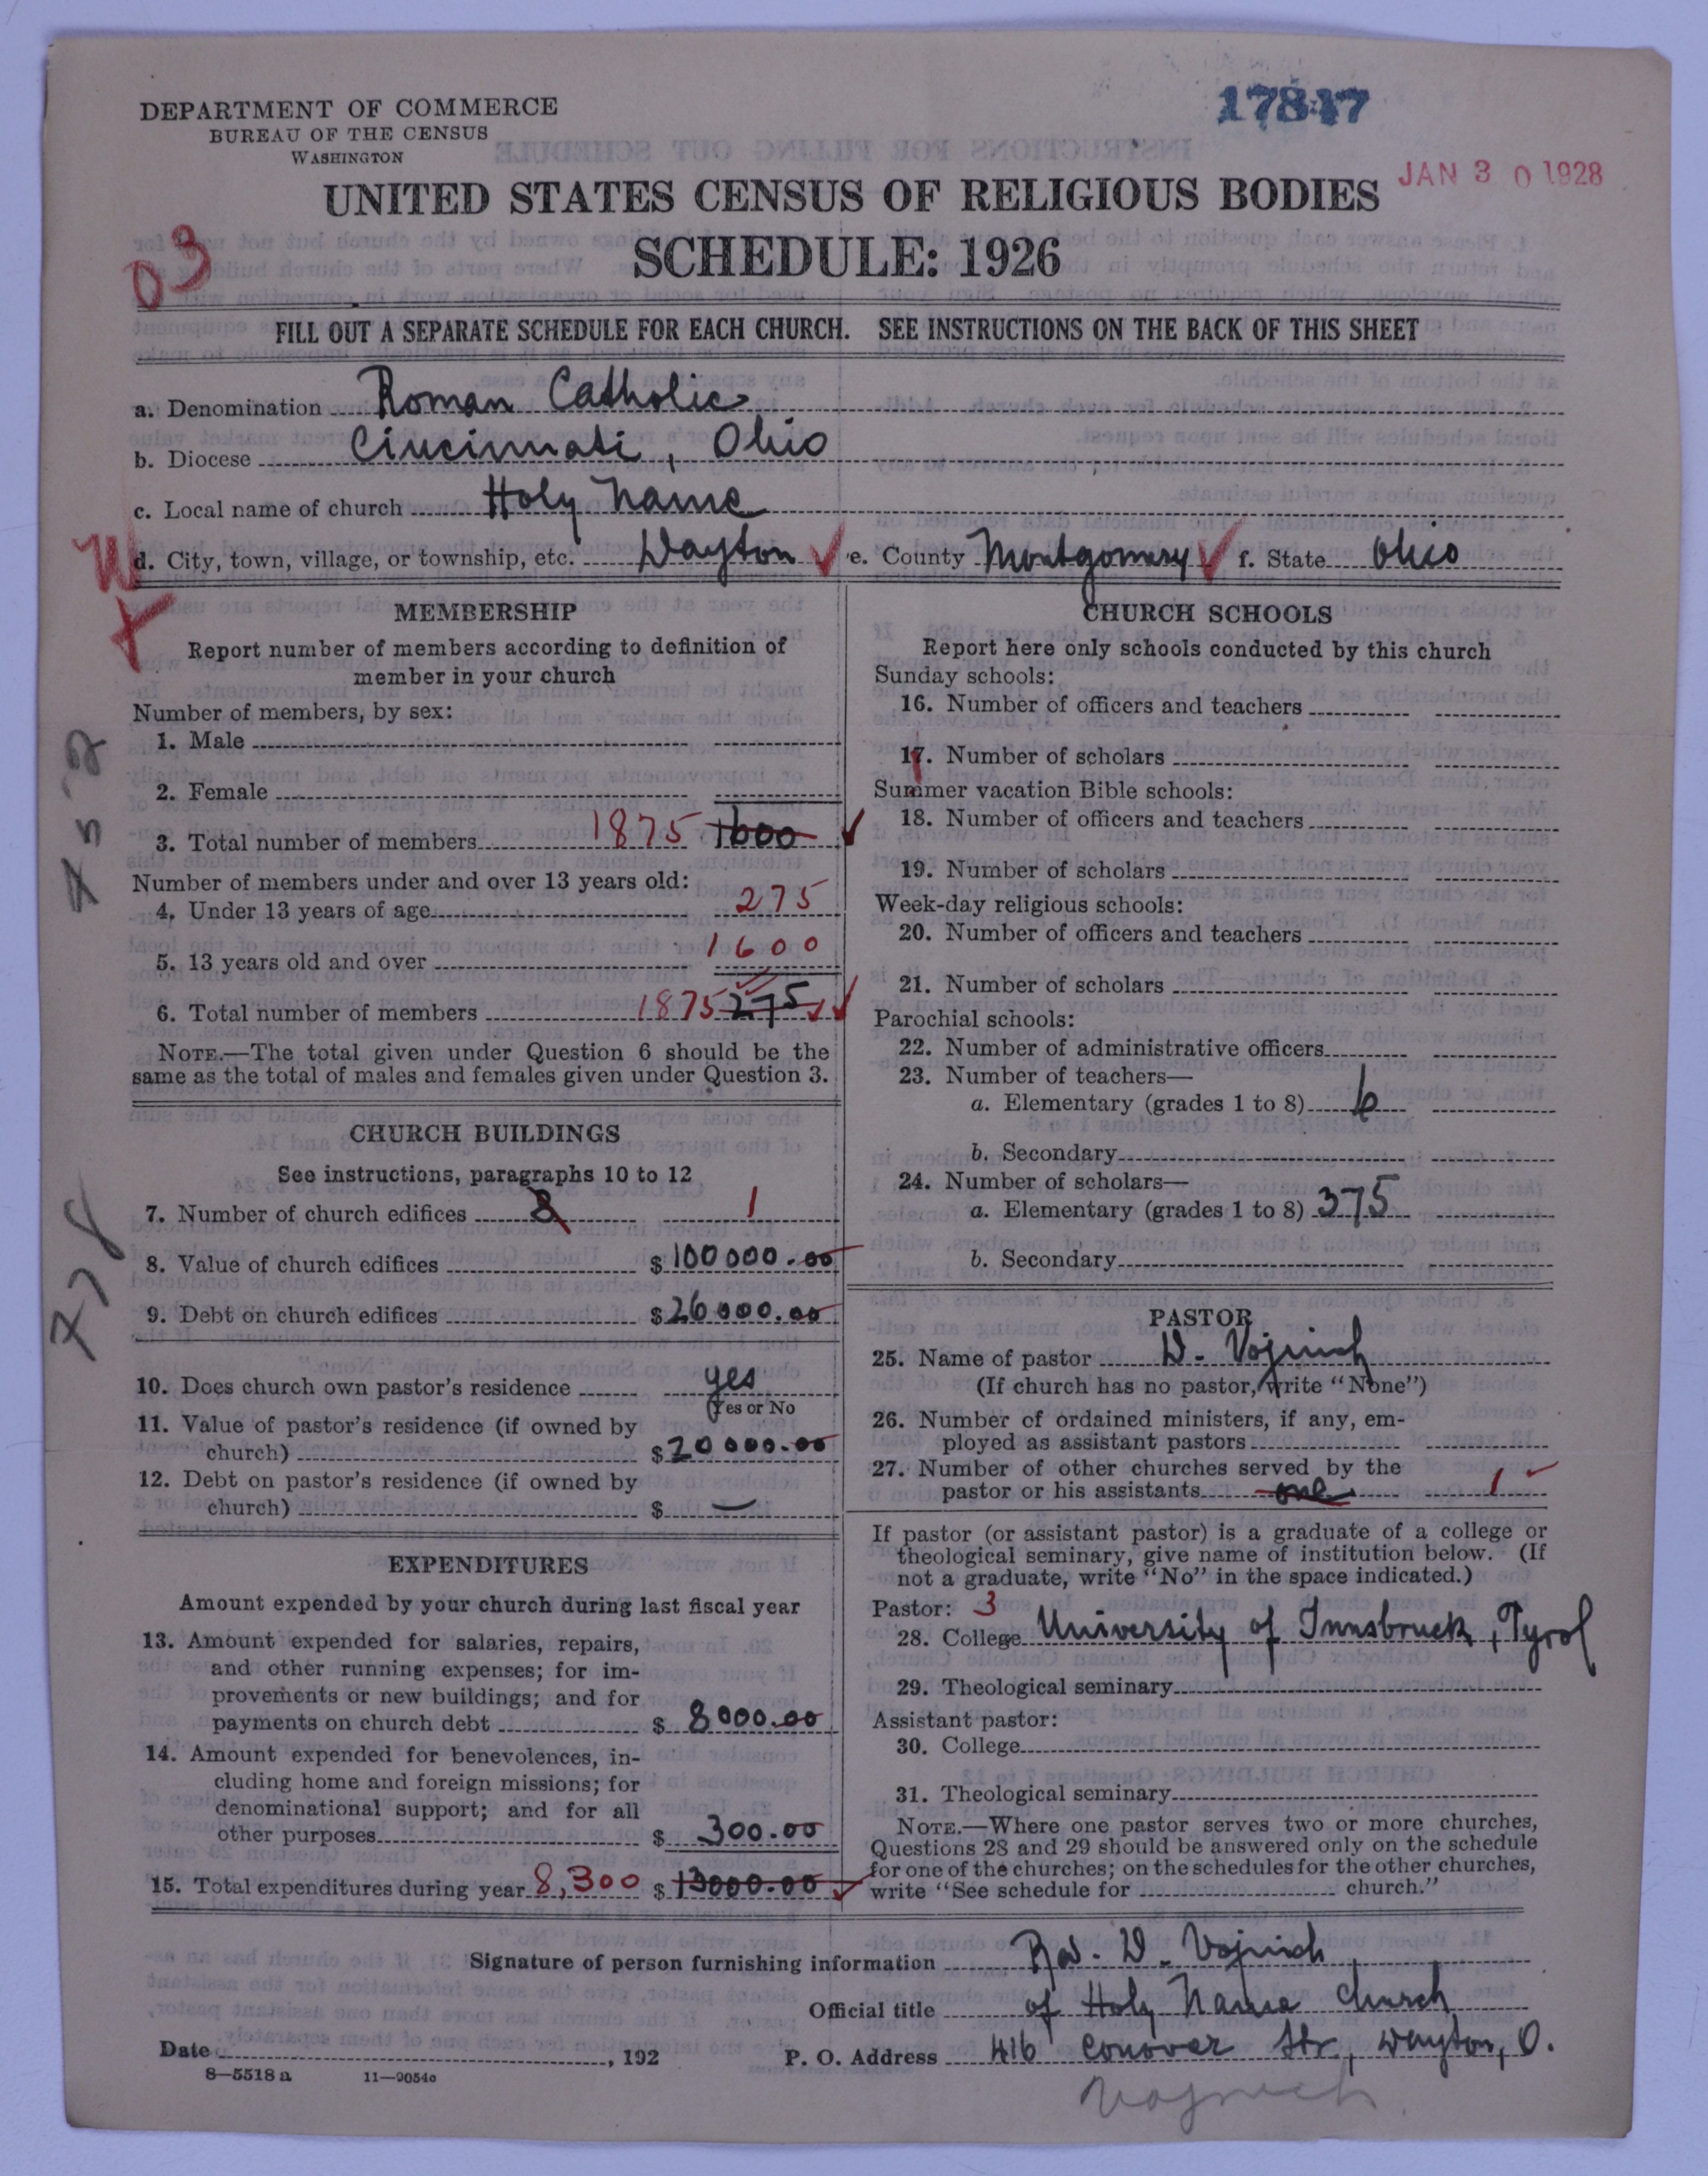 17847
DEPARTMENT OF COMMERCE
BUREAU OF THE CENSUS
WASHINGTON
JAN 30 1928
UNITED STATES CENSUS OF RELIGIOUS BODIES
SCHEDULE: 1926
03
FILL OUT A SEPARATE SCHEDULE FOR EACH CHURCH. SEE INSTRUCTIONS ON THE BACK OF THIS SHEET
a. Denomination Roman Catholic
b. Diocese Cincinnati, Ohio
c. Local name of church Holy Name
d. City, town, village, or township, etc. Dayton e. County Montgomery f. State Ohio
MEMBERSHIP
Report number of members according to definition of
member in your church
Number of members, by sex:
1. Male
2. Female
3. Total number of members 1875 1600
Number of members under and over 13 years old:
4. Under 13 years of age 275
5. 13 years old and over 1600
6. Total number of members 1875 275
NOTE.—The total given under Question 6 should be the
same as the total of males and females given under Question 3.
CHURCH BUILDINGS
See instructions, paragraphs 10 to 12
7. Number of church edifices 1
8. Value of church edifices $ 100000.00
9. Debt on church edifices $ 26000.00
10. Does church own pastor's residence yes
(Yes or No
11. Value of pastor's residence (if owned by
church) $ 20000.00
12. Debt on pastor's residence (if owned by
church) $ —
EXPENDITURES
Amount expended by your church during last fiscal year
13. Amount expended for salaries, repairs,
and other running expenses; for im-
provements or new buildings; and for
payments on church debt $ 8000.00
14. Amount expended for benevolences, in-
cluding home and foreign missions; for
denominational support; and for all
other purposes $ 300.00
15. Total expenditures during year 8,300 $ 13000.00
CHURCH SCHOOLS
Report here only schools conducted by this church
Sunday schools:
16. Number of officers and teachers
17. Number of scholars
Summer vacation Bible schools:
18. Number of officers and teachers
19. Number of scholars
Week-day religious schools:
20. Number of officers and teachers
21. Number of scholars
Parochial schools:
22. Number of administrative officers
23. Number of teachers—
a. Elementary (grades 1 to 8) 6
b. Secondary
24. Number of scholars—
a. Elementary (grades 1 to 8) 375
b. Secondary
PASTOR
25. Name of pastor D. Vojnich
(If church has no pastor, write "None")
26. Number of ordained ministers, if any, em-
ployed as assistant pastors
27. Number of other churches served by the
pastor or his assistants one 1
If pastor (or assistant pastor) is a graduate of a college or
theological seminary, give name of institution below. (If
not a graduate, write "No" in the space indicated.)
Pastor: 3
28. College University of Innsbruck, Tyrol
29. Theological seminary
Assistant pastor:
30. College
31. Theological seminary
NOTE.—Where one pastor serves two or more churches,
Questions 28 and 29 should be answered only on the schedule
for one of the churches; on the schedules for the other churches,
write "See schedule for church."
Signature of person furnishing information Rev. D. Vojnich
Official title of Holy Name Church
Date , 192 P. O. Address 416 Conover Str., Dayton, O.
8—5518 a 11—9054c
Vojnich